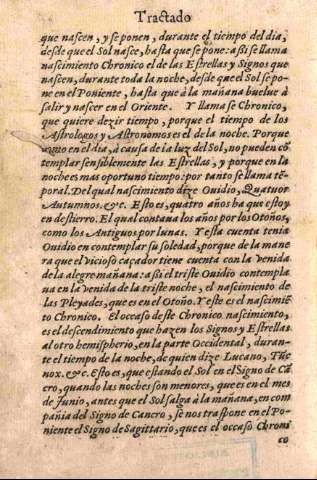 Tractado
que nascen, y se ponen, durante el tiempo del dia,
desde que el Sol nasce, hasta que se pone: assi se llama
nascimiento Chronico el de las Estrellas y Signos que
nascen, durante toda la noche, desde que el Sol se po-
ne en el Poniente, hasta que à la mañana buelue à
salir y nascer en el Oriente. Y llama se Chronico,
que quiere dezir tiempo, porque el tiempo de los
Astrologos y Astronomos es el de la noche. Porque
en el dia, à causa de la luz del Sol, no pueden cō
templar sensiblemente las Estrellas, y porque en la
noche es mas oportuno tiempo: por tanto se llama tē-
poral. Del qual nascimiento dize Ouidio, Quatuor
Autumnos. &c. Esto es, quatro años ha que estoy
en destierro. El qual contaua los años por los Otoños,
como los Antiguos por lunas. Y esta cuenta tenia
Ouidio en contemplar su soledad, porque de la mane
ra que el vicioso caçador tiene cuenta con la venida
de la alegre mañana: assi el triste Ouidio contempla
ua en la venida de la triste noche, el nascimiento de
las Pleyades, que es en el Otoño. Y este es nascimiē
to Chronico. El occaso deste Chronico nascimiento,
es el descendimiento que hazen los Signos y Estrellas
al otro hemispherio, en la parte Occidental, duran-
te el tiempo de la noche, de quien dize Lucano, Tūc
nox. &c. Esto es, que estando el Sol en el Signo de Cā
cro, quando las noches son menores, que es en el mes
de Junio, antes que el Sol salga à la mañana, en com
pañia del Signo de Cancro, se nos traspone en el Po-
niente el Signo de Sagittario, que es el occaso Chroni
co